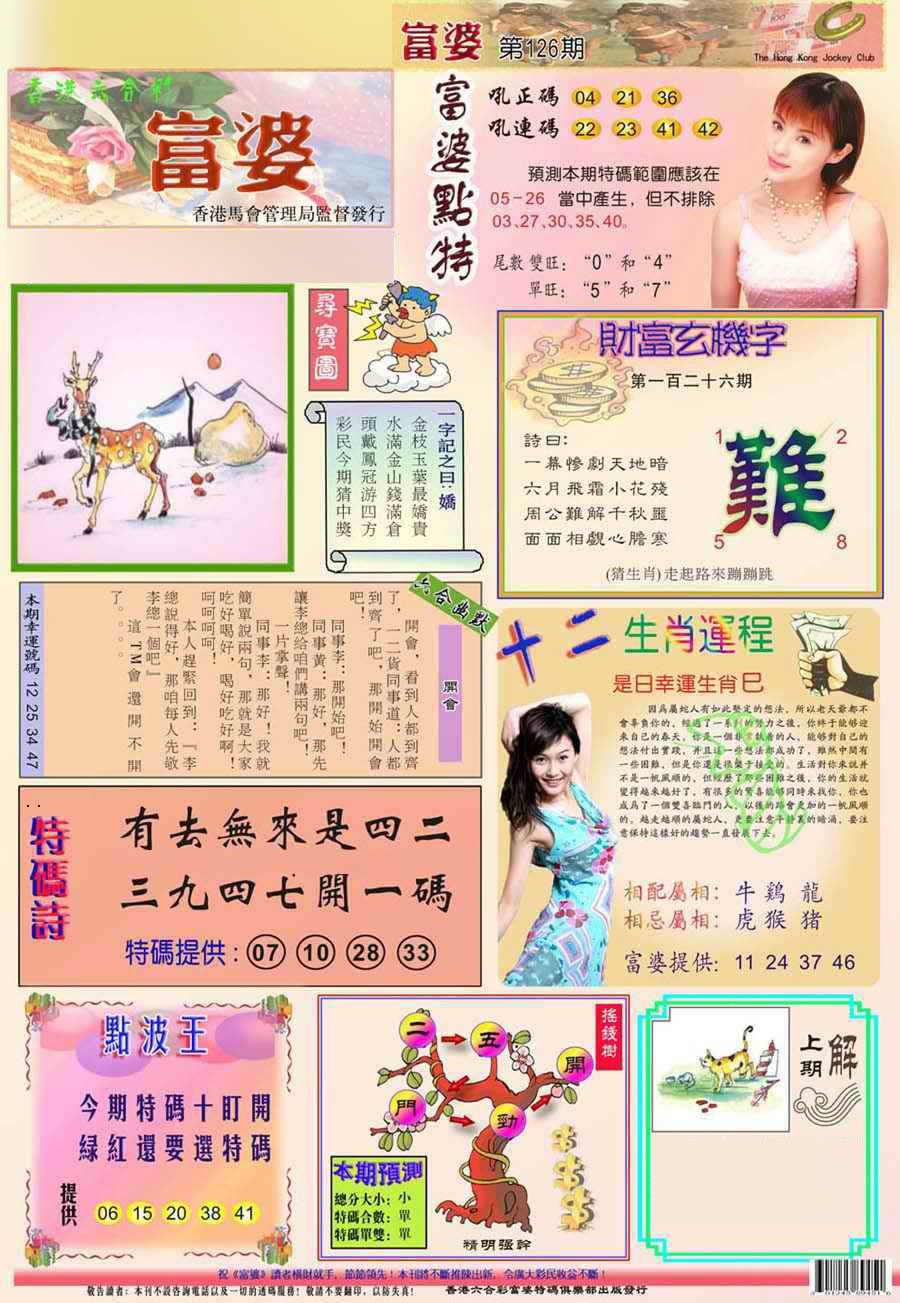 富婆 第126期
The Hong Kong Jockey Club
香港六合彩
富婆
香港馬會管理局監督發行
富婆點特
吼正碼 04 21 36
吼連碼 22 23 41 42
預測本期特碼範圍應該在
05-26 當中產生，但不排除
03、27、30、35、40。
尾數雙旺：“0”和“4”
單旺：“5”和“7”
尋寶圖
一字記之曰：嬌
金枝玉葉最嬌貴
水滿金山錢滿倉
頭戴鳳冠游四方
彩民今期猜中獎
財富玄機字
第一百二十六期
詩曰：
一幕慘劇天地暗
六月飛霜小花殘
周公難解千秋噩
面面相覷心膽寒
1 2
難
5 8
(猜生肖)走起路來蹦蹦跳
六合幽默
開會
開會，看到人都到齊
了，一二貨同事道：人都
到齊了吧，那開始開會
吧！
同事李：那開始吧！
同事黃：那好，那先
讓李總給咱們講兩句吧！
一片掌聲！
同事李：那好！我就
簡單說兩句，那就是大家
吃好喝好，喝好吃好啊！
呵呵呵呵！
本人趕緊回到：『李
總說得好，那咱每人先敬
李總一個吧』
這TM會還開不開
了。。。
本期幸運號碼 12 25 34 47
十二生肖運程
是日幸運生肖巳
因為屬蛇人有如此堅定的想法，所以老天爺都不
會辜負你的，經過了一系列的努力之後，你終于能够迎
來自己的春天，你是一個非常執着的人，能够對自己的
想法付出實踐，并且這一些想法都成功了，雖然中間有
一些困難，但是你還是很樂于接受的。生活對你來説并
不是一帆風順的，但經歷了那些困難之後，你的生活就
變得越來越好了，有很多的驚喜能够同時來找你，你也
成爲了一個雙喜臨門的人，以後的路會更加的一帆風順
的。越走越順的屬蛇人，更要注意平静裏的暗涌，要注
意保持這樣好的趨勢一直發展下去。
相配屬相：牛 鷄 龍
相忌屬相：虎 猴 猪
富婆提供：11 24 37 46
特碼詩
有去無來是四二
三九四七開一碼
特碼提供：07 10 28 33
點波王
今期特碼十盯開
綠紅還要選特碼
提供 06 15 20 38 41
搖錢樹
二 五 開
門 勁
本期預測
總分大小：小
特碼合數：單
特碼單雙：單
精明強幹
上期解
祝《富婆》讀者橫財就手，節節領先！本刊將不斷推陳出新，令廣大彩民收益不斷！
敬告讀者：本刊不設咨詢電話以及一切的透碼服務！敬請不要翻印，以防失真！ 香港六合彩富婆特碼俱樂部出版發行